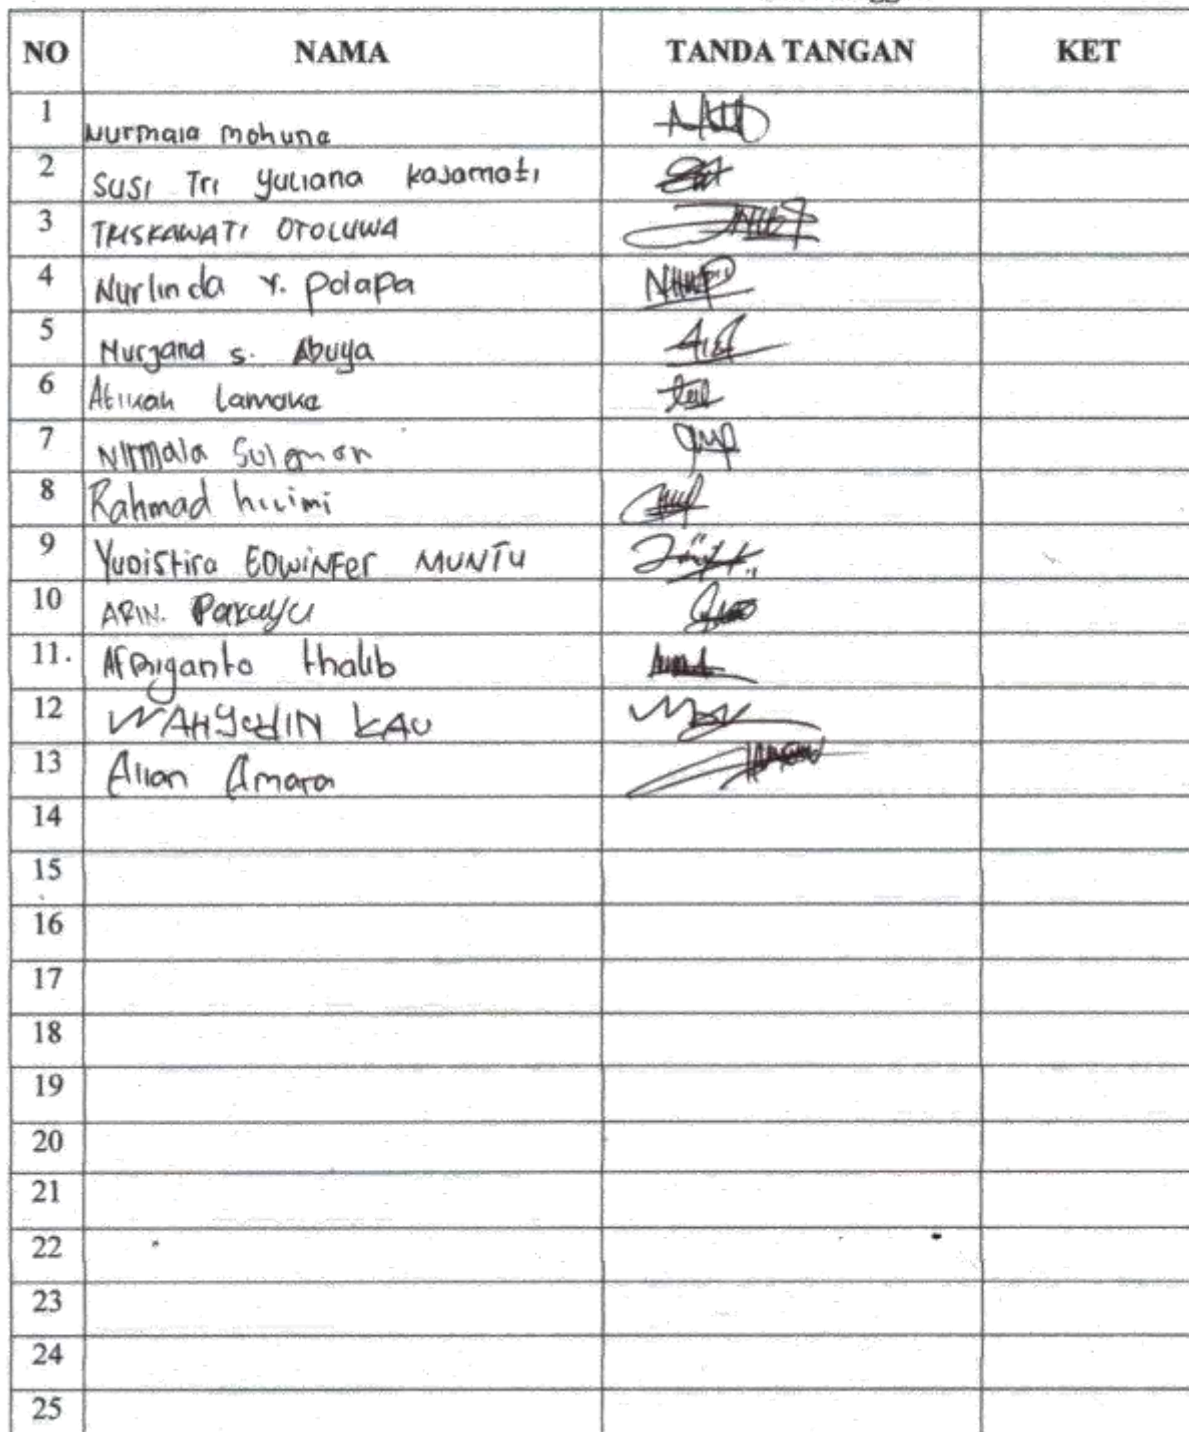 NO NAMA TANDA TANGAN KET
1 Nurmala mohuna
2 SUSI Tri Yuliana kasamati
3 TRISKAWATI OTOLUWA
4 Nurlinda Y. Polapa
5 Nurjana s. Abuya
6 Atikah Lamaka
7 NIrMala Suleman
8 Rahmad hilimi
9 YuDiStira EDWiNFer MUNTU
10 ARIN. Pakaya
11. Afriyanto thalib
12 WAHYudIN KAU
13 Alian Amara
14
15
16
17
18
19
20
21
22
23
24
25